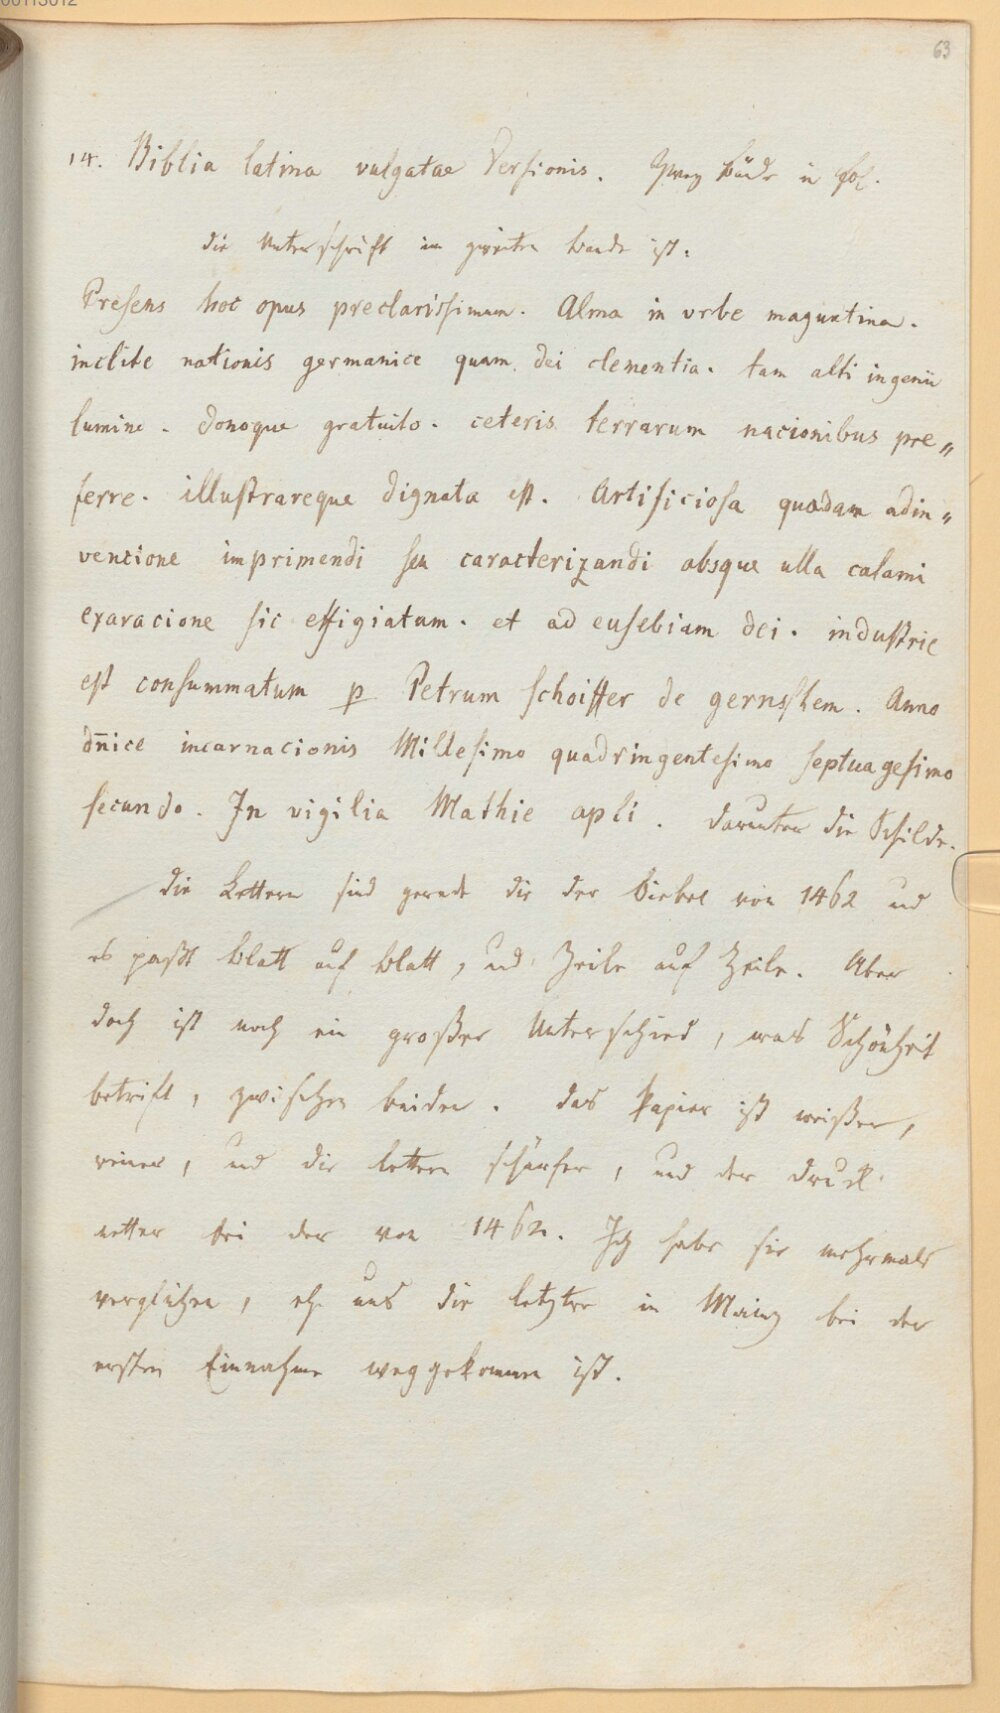 00113012
63
14. Biblia latina vulgatae Versionis. Zwey Bände in fol.
die Unterschrift im zweiten Bande ist:
Presens hoc opus preclarissimum. Alma in vrbe maguntina.
inclite nationis germanice quam dei clementia. tam alti ingenii
lumine. donoque gratuito. ceteris terrarum nacionibus pre„
ferre. illustrareque dignata est. Artificiosa quadam adin„
vencione imprimendi seu caracterizandi absque ulla calami
exaracione sic effigiatum. et ad eusebiam dei. industrie
est consummatum p Petrum schoiffer de gernsshem. Anno
dn̄ice incarnacionis Millesimo quadringentesimo septuagesimo
secundo. In vigilia Mathie apli. darunter die Schilde.
Die Lettern sind gerade die der Biebel von 1462 und
es paßt Blatt auf Blatt, und Zeile auf Zeile. Aber
doch ist noch ein großer Unterschied, was Schönheit
betrift, zwischen beiden. Das Papier ist weißer,
reiner, und die Lettern schärfer, und der Druck
netter bei der von 1462. Ich habe sie mehrmals
verglichen, eh uns die letzter in Mainz bei der
ersten Einnahme weggekommen ist.